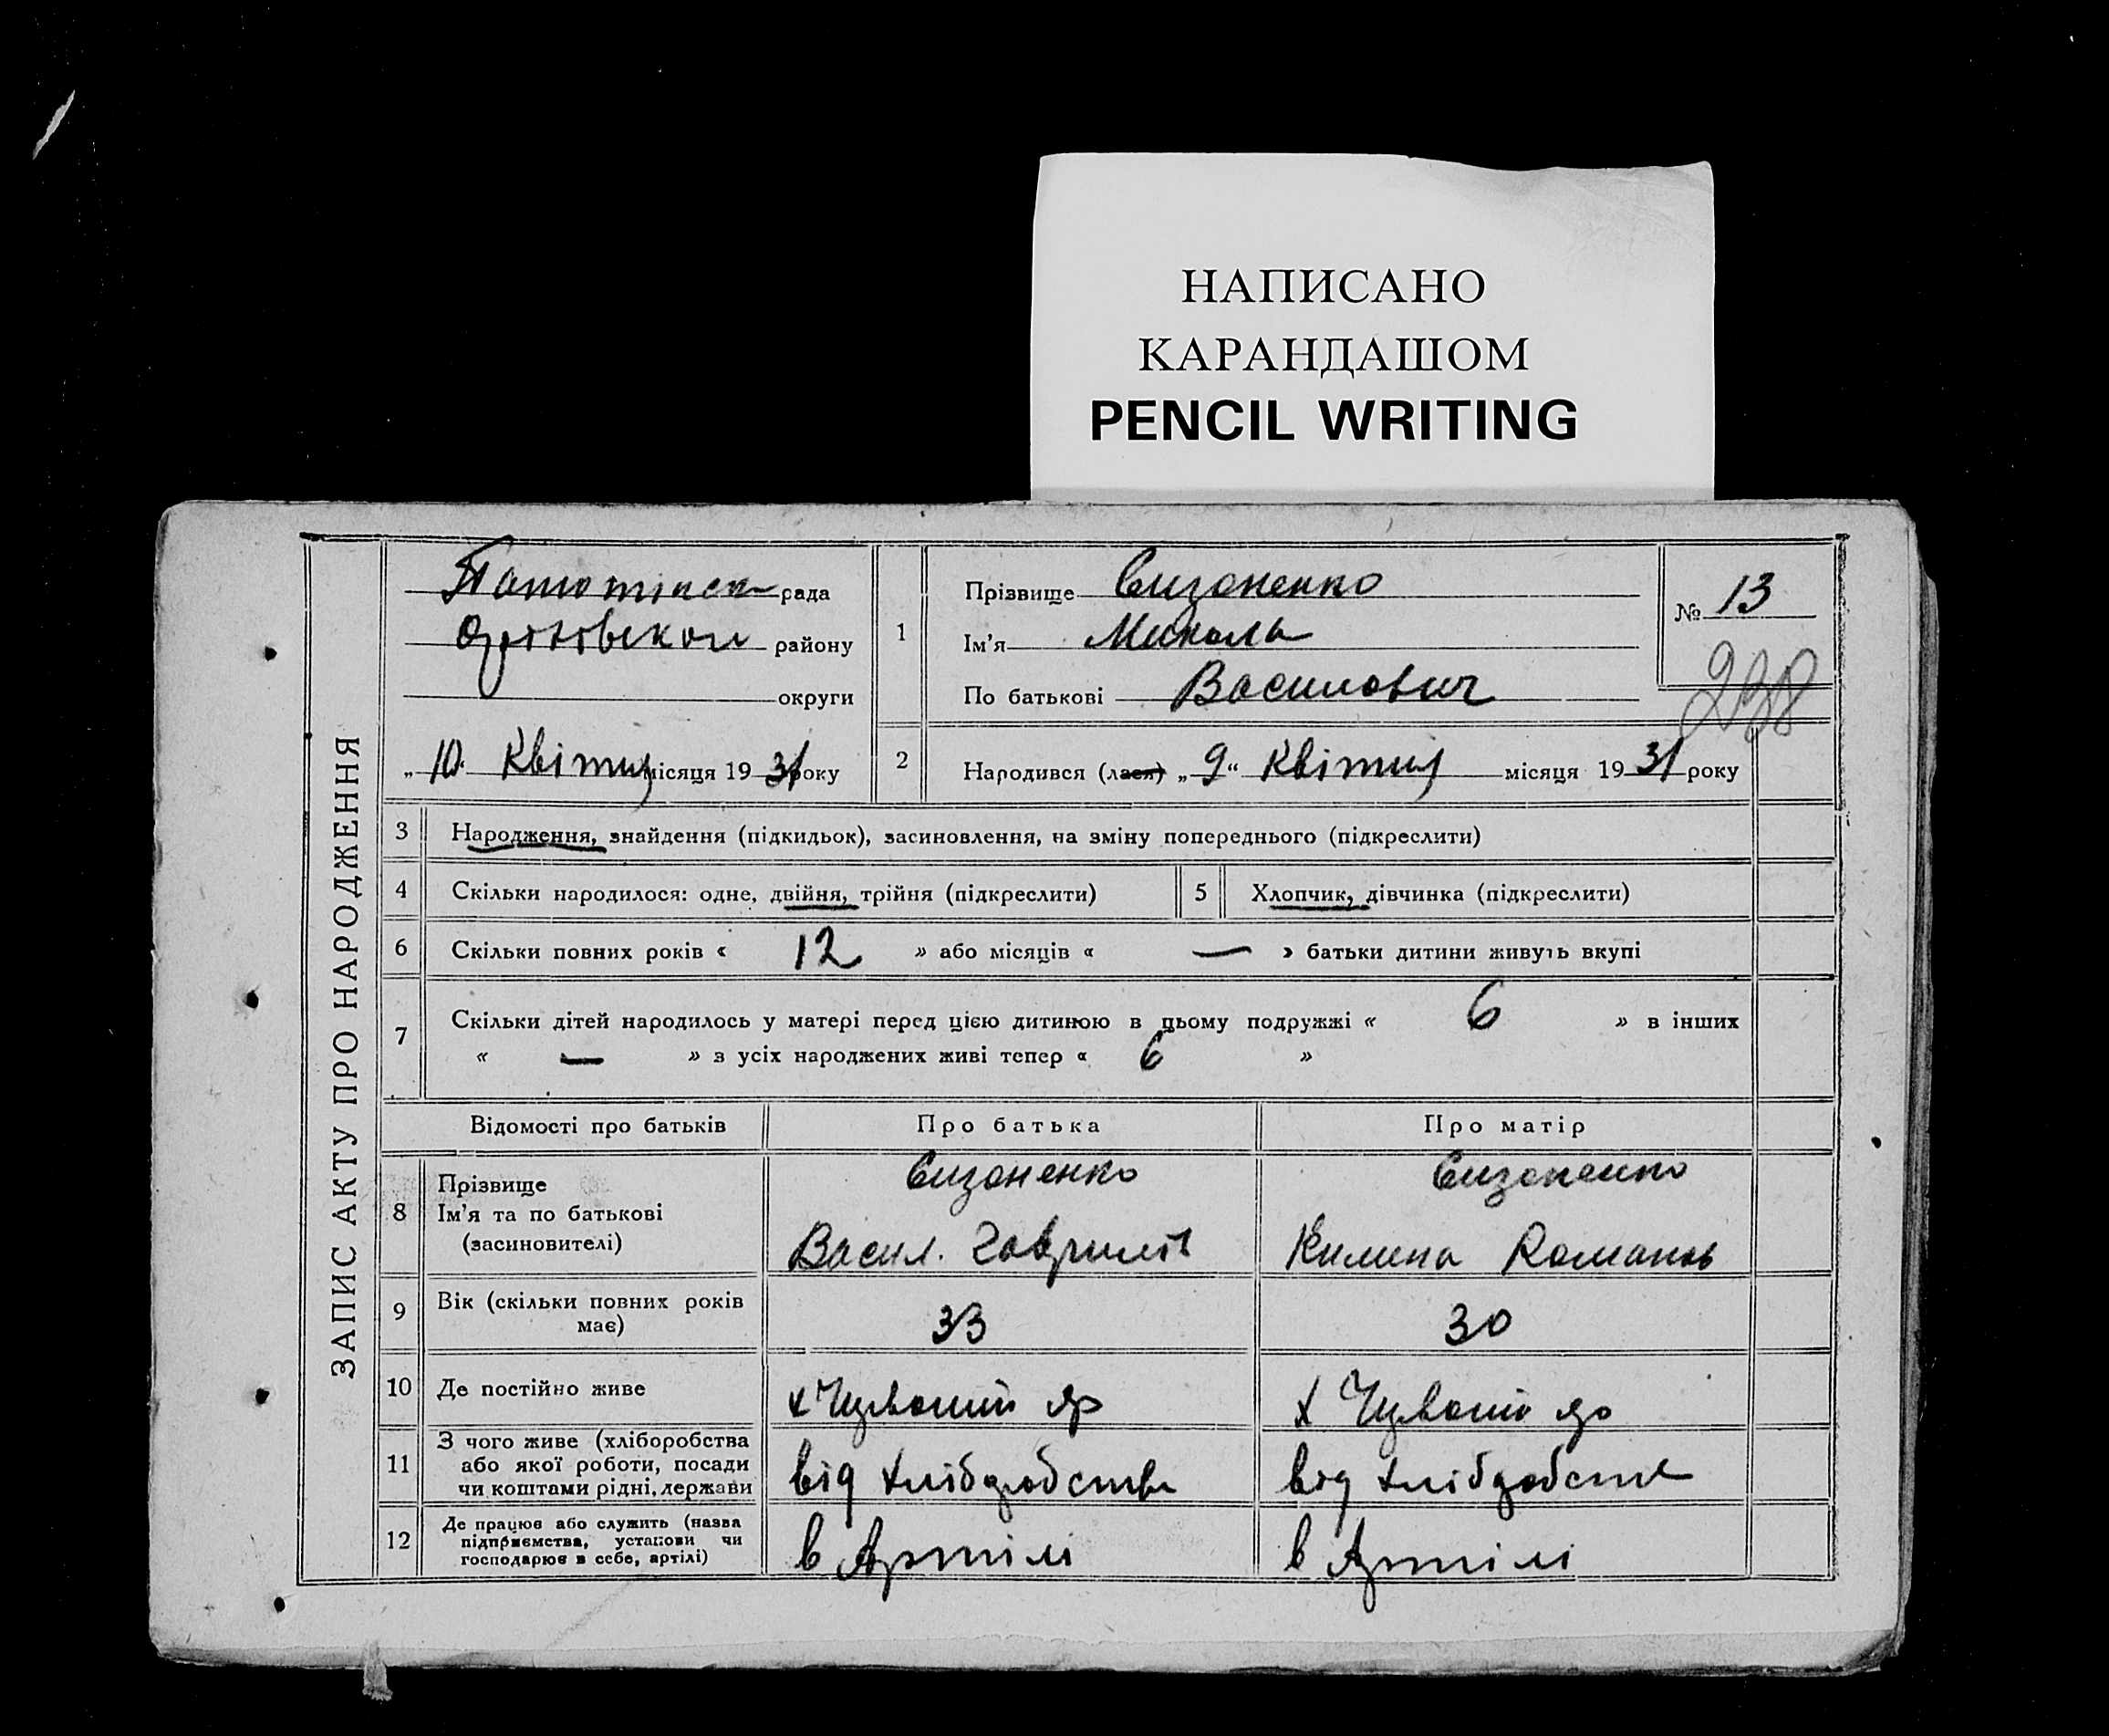 НАПИСАНО
КАРАНДАШОМ
PENCIL WRITING
ЗАПИС АКТУ ПРО НАРОДЖЕННЯ
рада
району
округи
„10" Квітня місяця 1931 року
1
Прізвище Сизоненко
Ім'я Микола
По батькові Василович
№ 13
238
2
Народився (лася) „9" Квітня місяця 1931 року
3 Народження, знайдення (підкидьок), засиновлення, на зміну попереднього (підкреслити)
4 Скільки народилося: одне, двійня, трійня (підкреслити) 5 Хлопчик, дівчинка (підкреслити)
6 Скільки повних років « 12 » або місяців « — » батьки дитини живуть вкупі
7 Скільки дітей народилось у матері перед цією дитиною в цьому подружжі « 6 » в інших
« — » з усіх народжених живі тепер « 6 »
Відомості про батьків Про батька Про матір
8 Прізвище
Ім'я та по батькові
(засиновителі)
Сизоненко
Васил. Гаврилов
Сизоненко
Килина Романов
9 Вік (скільки повних років
має)
33 30
10 Де постійно живе
х яр
х яр
11 З чого живе (хліборобства
або якої роботи, посади
чи коштами рідні, держави
від хліборобства
від хліборобства
12 Де працює або служить (назва
підприємства, установи чи
господарює в себе, артілі)
в Артілі
в Артілі